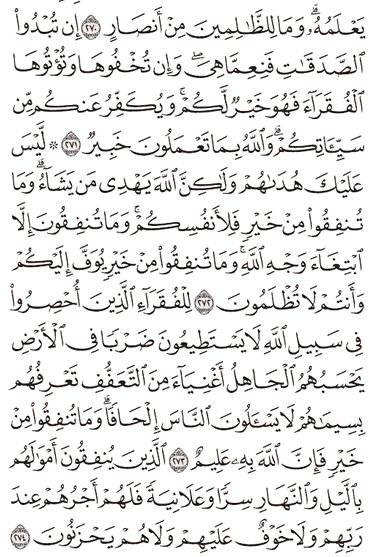 يَعْلَمُهُۥۗ وَمَا لِلظَّٰلِمِينَ مِنْ أَنصَارٍ ٢٧٠ إِن تُبْدُوا۟
ٱلصَّدَقَٰتِ فَنِعِمَّا هِىَۖ وَإِن تُخْفُوهَا وَتُؤْتُوهَا
ٱلْفُقَرَآءَ فَهُوَ خَيْرٌ لَّكُمْۚ وَيُكَفِّرُ عَنكُم مِّن
سَيِّـَٔاتِكُمْۗ وَٱللَّهُ بِمَا تَعْمَلُونَ خَبِيرٌ ٢٧١ ۞ لَّيْسَ
عَلَيْكَ هُدَىٰهُمْ وَلَٰكِنَّ ٱللَّهَ يَهْدِى مَن يَشَآءُۗ وَمَا
تُنفِقُوا۟ مِنْ خَيْرٍ فَلِأَنفُسِكُمْۚ وَمَا تُنفِقُونَ إِلَّا
ٱبْتِغَآءَ وَجْهِ ٱللَّهِۚ وَمَا تُنفِقُوا۟ مِنْ خَيْرٍ يُوَفَّ إِلَيْكُمْ
وَأَنتُمْ لَا تُظْلَمُونَ ٢٧٢ لِلْفُقَرَآءِ ٱلَّذِينَ أُحْصِرُوا۟
فِى سَبِيلِ ٱللَّهِ لَا يَسْتَطِيعُونَ ضَرْبًا فِى ٱلْأَرْضِ
يَحْسَبُهُمُ ٱلْجَاهِلُ أَغْنِيَآءَ مِنَ ٱلتَّعَفُّفِ تَعْرِفُهُم
بِسِيمَٰهُمْ لَا يَسْـَٔلُونَ ٱلنَّاسَ إِلْحَافًاۗ وَمَا تُنفِقُوا۟ مِنْ
خَيْرٍ فَإِنَّ ٱللَّهَ بِهِۦ عَلِيمٌ ٢٧٣ ٱلَّذِينَ يُنفِقُونَ أَمْوَٰلَهُم
بِٱلَّيْلِ وَٱلنَّهَارِ سِرًّا وَعَلَانِيَةً فَلَهُمْ أَجْرُهُمْ عِندَ
رَبِّهِمْ وَلَا خَوْفٌ عَلَيْهِمْ وَلَا هُمْ يَحْزَنُونَ ٢٧٤